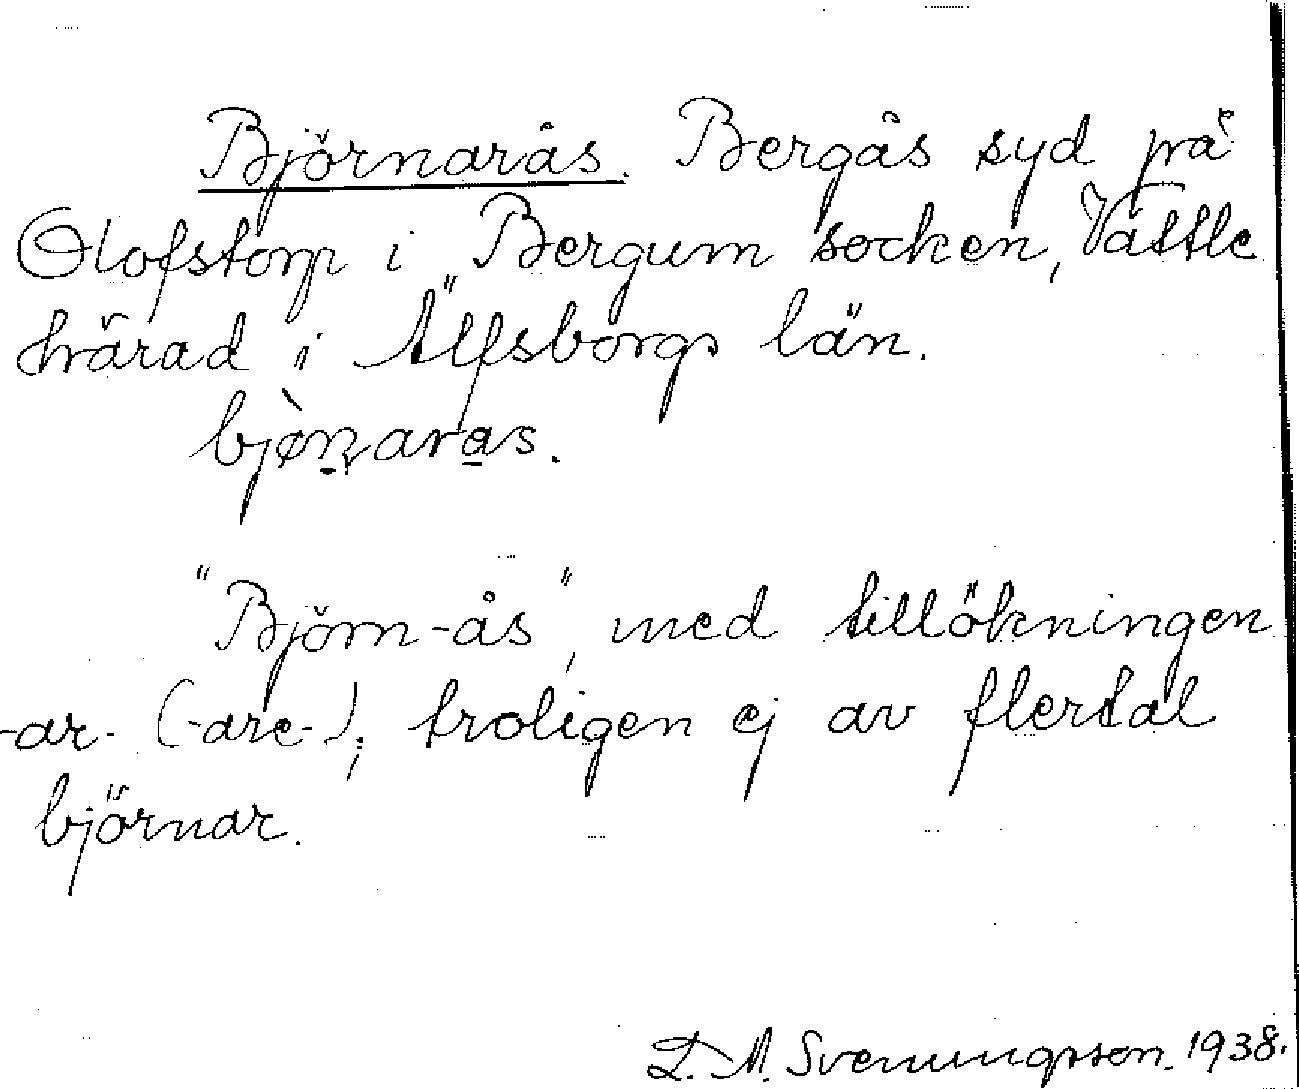 Björnarås. Bergås syd på
Olofstorp i Bergum socken, Vättle
härad i Älfsborgs län.
bjö̀n̠aras.
"Björn-ås", med tillökningen
-ar- (-are-); troligen ej av flertal
björnar.
L. M. Svenungsson. 1938.